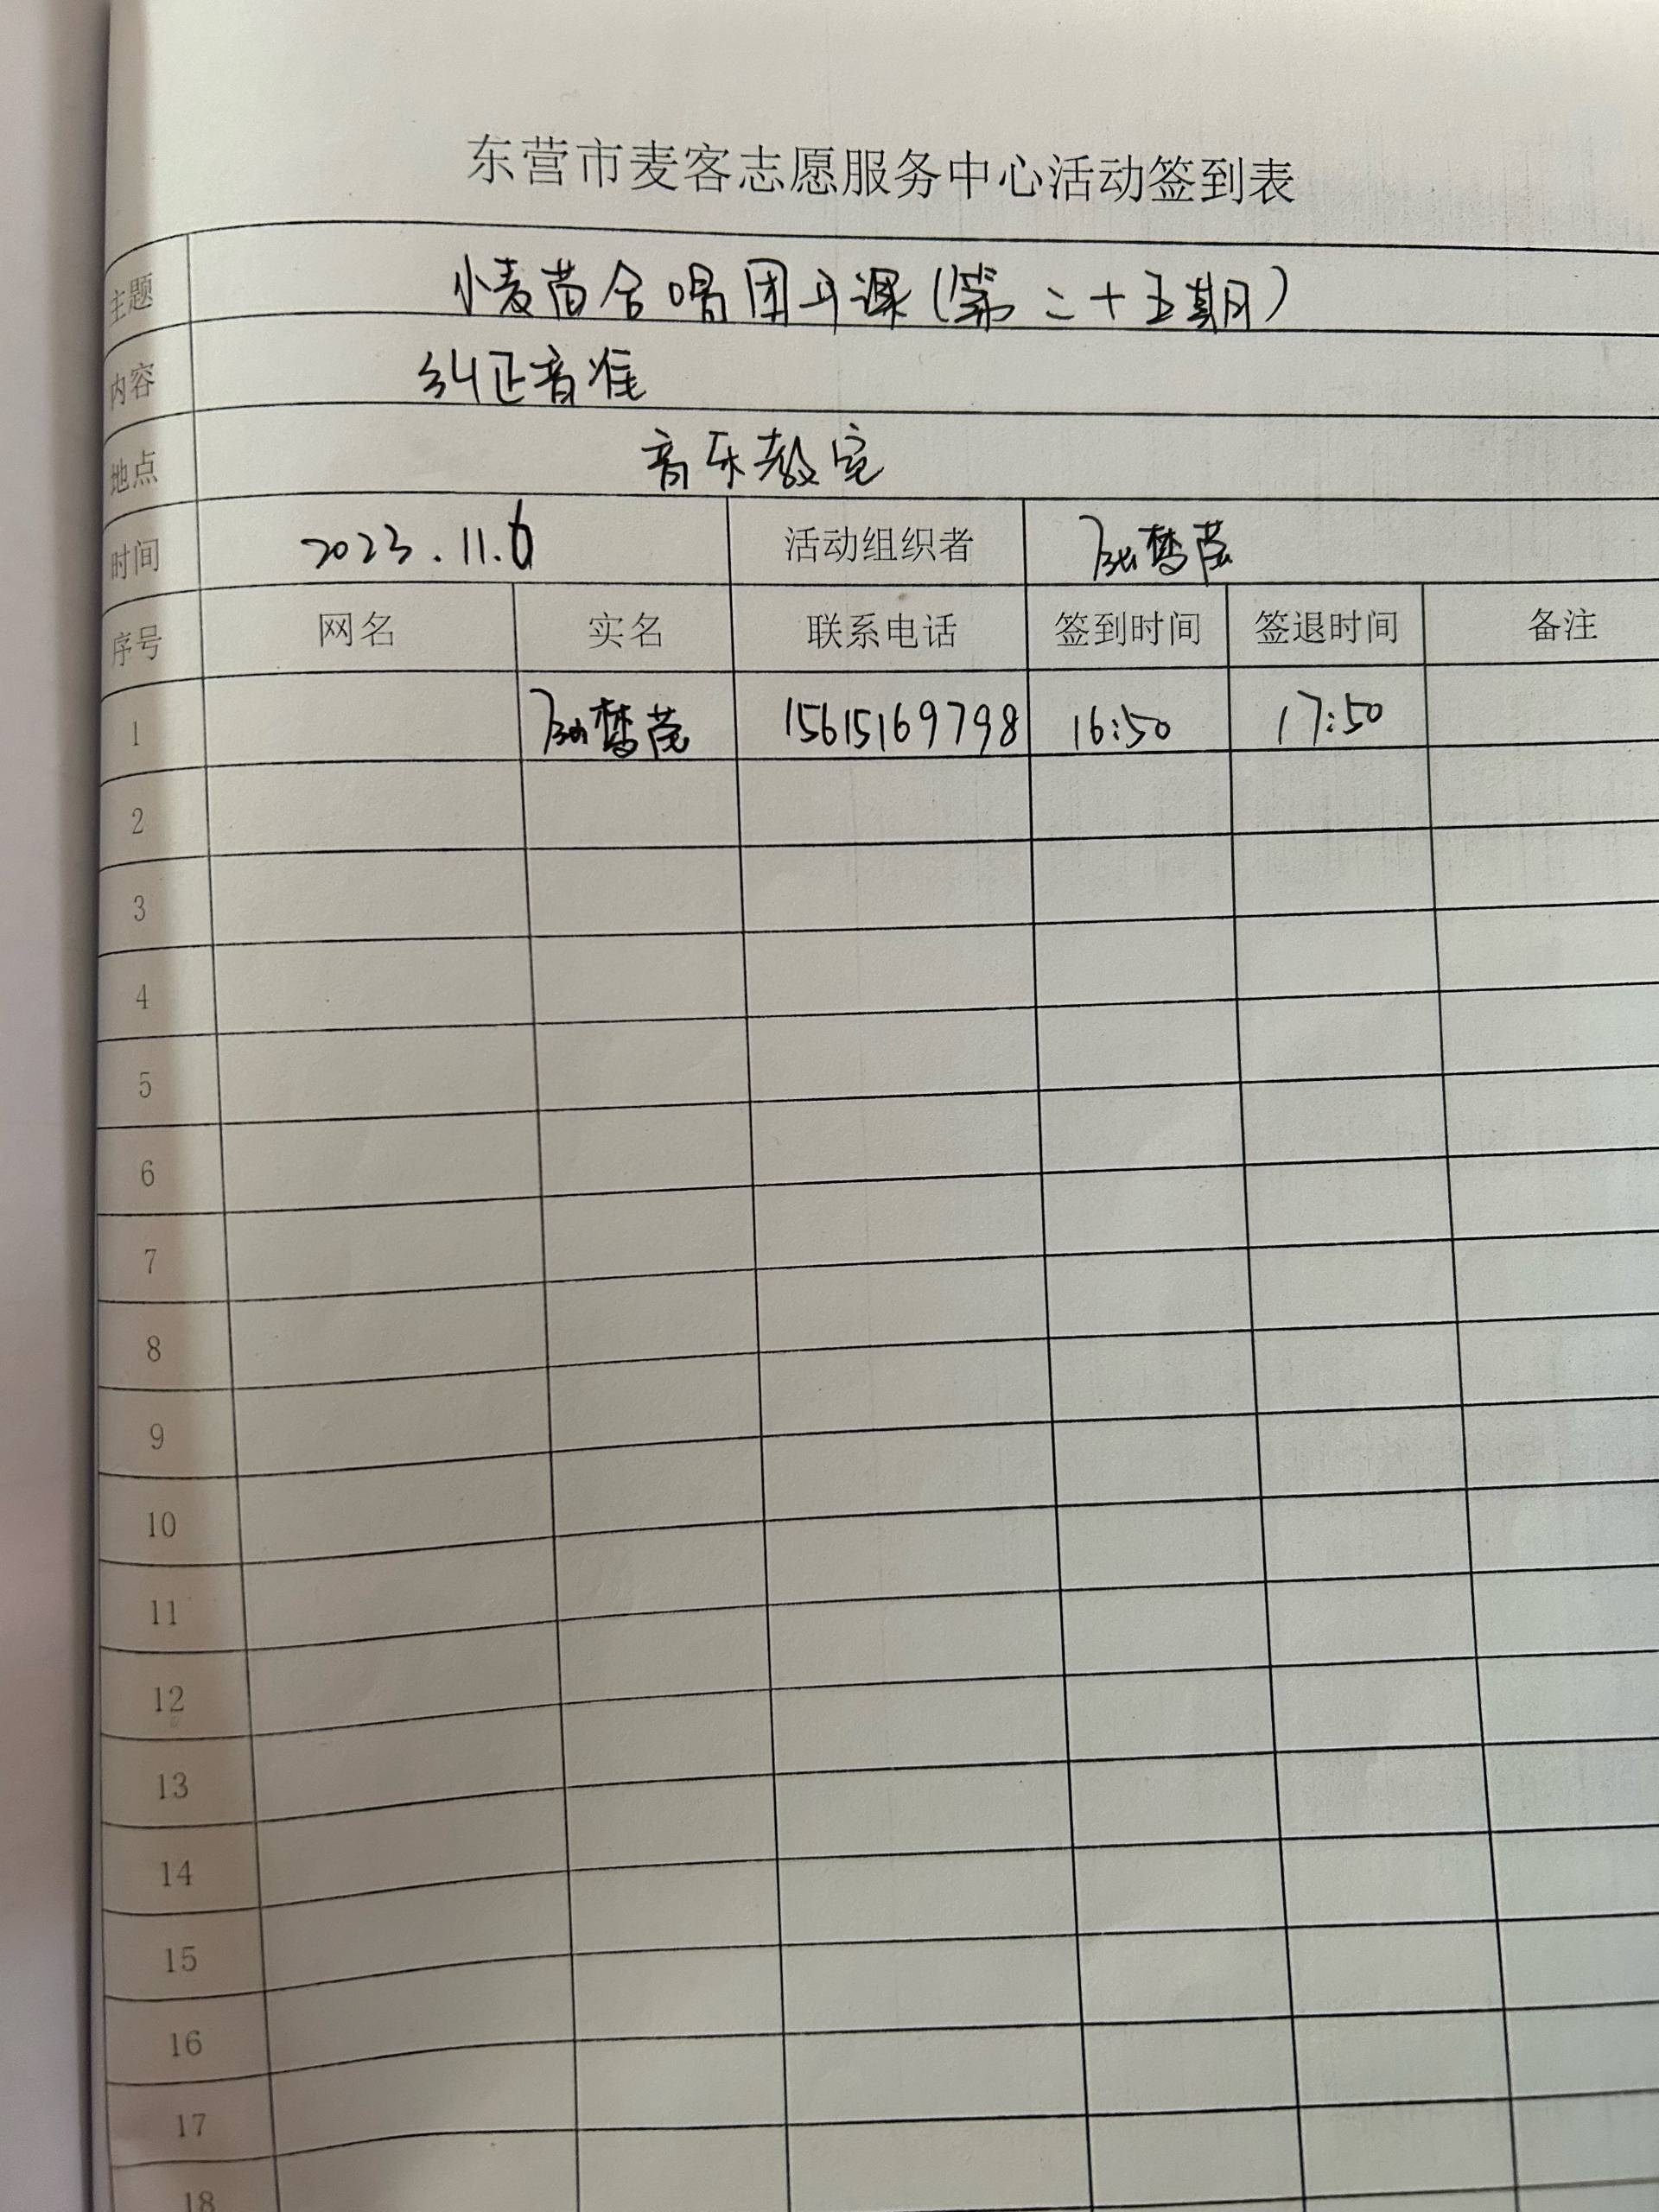 东营市麦客志愿服务中心活动签到表
主题 小麦苗合唱团开课(第二十五期)
内容 纠正音准
地点 音乐教室
时间 2023.11.6 活动组织者 梦莹
序号 网名 实名 联系电话 签到时间 签退时间 备注
1 梦莹 15615169798 16:50 17:50
2
3
4
5
6
7
8
9
10
11
12
13
14
15
16
17
18